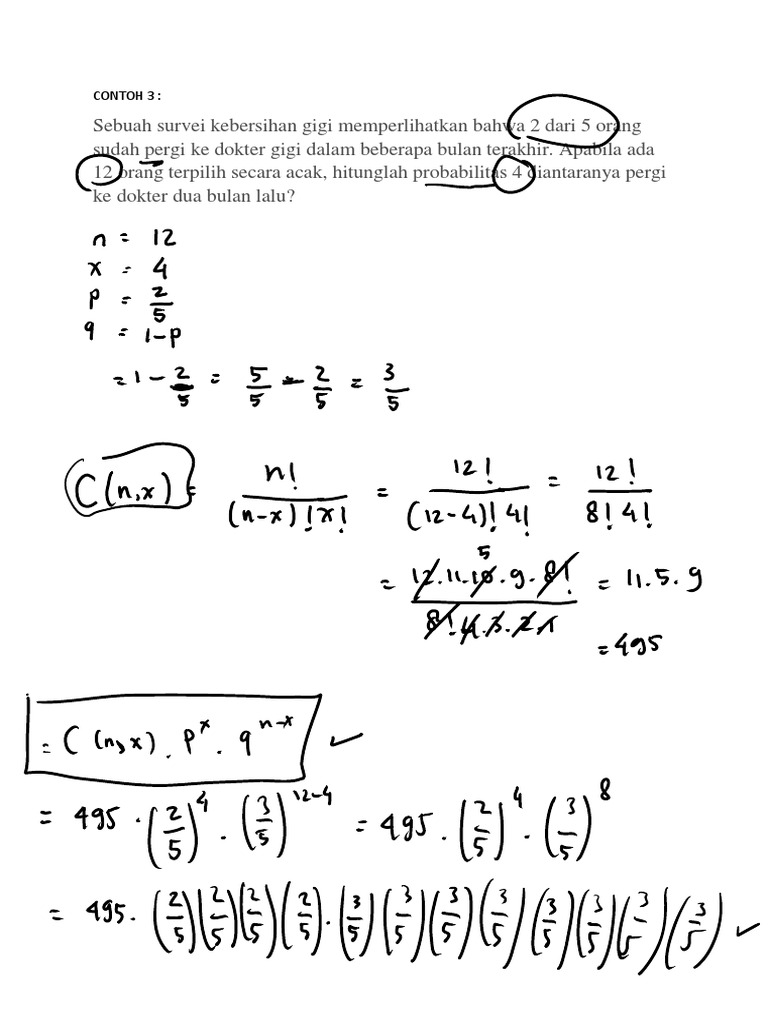 CONTOH 3 :
Sebuah survei kebersihan gigi memperlihatkan bahwa 2 dari 5 orang
sudah pergi ke dokter gigi dalam beberapa bulan terakhir. Apabila ada
12 orang terpilih secara acak, hitunglah probabilitas 4 diantaranya pergi
ke dokter dua bulan lalu?
n = 12
x = 4
P = 2/5
q = 1-P
= 1 - 2/5 = 5/5 - 2/5 = 3/5
C(n,x) = n!/(n-x)!x! = 12!/(12-4)!4! = 12!/8!4!
= 12.11.10.9.8!/8!.4.3.2.1 = 11.5.9
5
= 495
= C(n,x) . P^x . q^n-x ✓
= 495 . (2/5)^4 . (3/5)^12-4 = 495 . (2/5)^4 . (3/5)^8
= 495. (2/5)(2/5)(2/5)(2/5).(3/5)(3/5)(3/5)(3/5)(3/5)(3/5)(3/5)(3/5) ✓